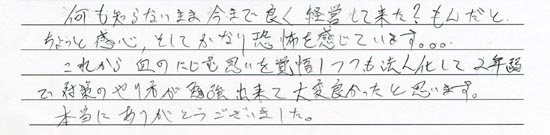 何も知らないまま今まで良く経営して来た?もんだと
ちょっと感心,そしてかなり恐怖を感じています。。。
これから血のにじむ思いを覚悟しつつも法人化して2年弱
で対策のやり方が勉強出来て大変良かったと思います。
本当にありがとうございました。